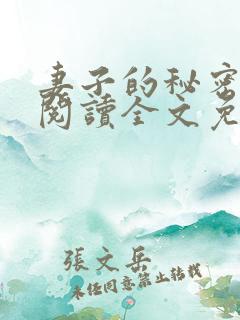 妻子的秘密
閱讀全文免
張文岳
未經同意禁止轉載